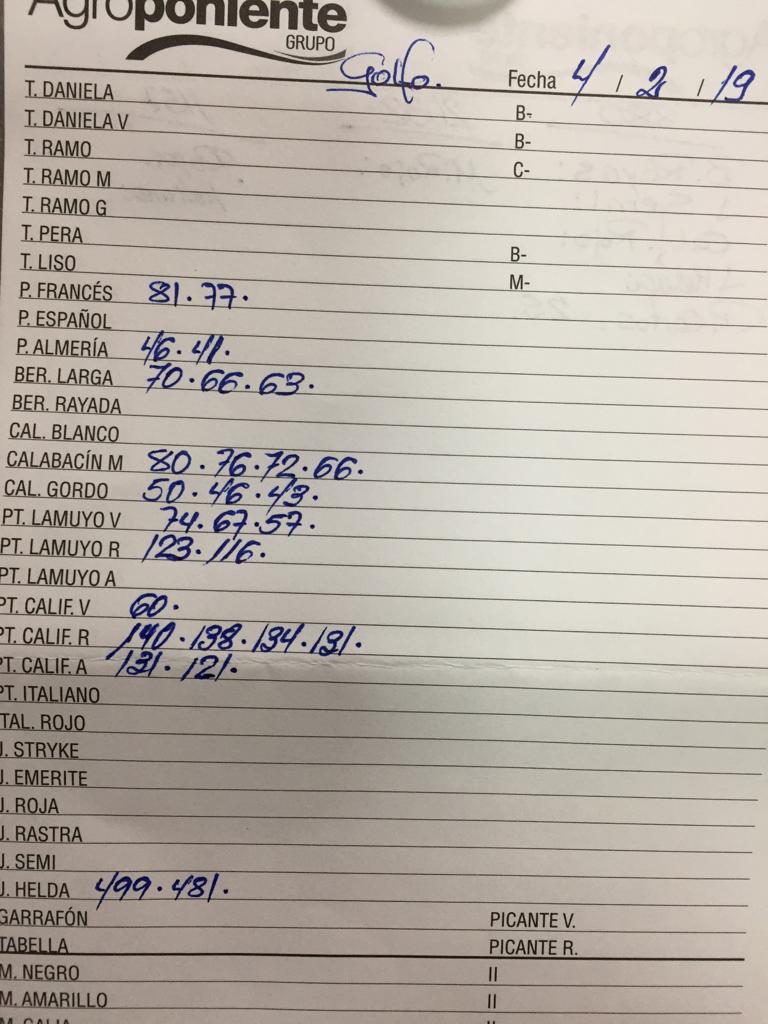 Agroponiente
GRUPO
Golfo. Fecha 4 / 2 / 19
T. DANIELA B-
T. DANIELA V B-
T. RAMO C-
T. RAMO M
T. RAMO G
T. PERA B-
T. LISO M-
P. FRANCÉS 81. 77.
P. ESPAÑOL
P. ALMERÍA 46. 41.
BER. LARGA 70. 66. 63.
BER. RAYADA
CAL. BLANCO
CALABACÍN M 80. 76. 72. 66.
CAL. GORDO 50. 46. 43.
PT. LAMUYO V 74. 67. 57.
PT. LAMUYO R 123. 116.
PT. LAMUYO A
PT. CALIF. V 60.
PT. CALIF. R 140. 138. 134. 131.
PT. CALIF. A 131. 121.
PT. ITALIANO
TAL. ROJO
J. STRYKE
J. EMERITE
J. ROJA
J. RASTRA
J. SEMI
J. HELDA 499. 481.
GARRAFÓN PICANTE V.
TABELLA PICANTE R.
M. NEGRO II
M. AMARILLO II
M. GALIA II